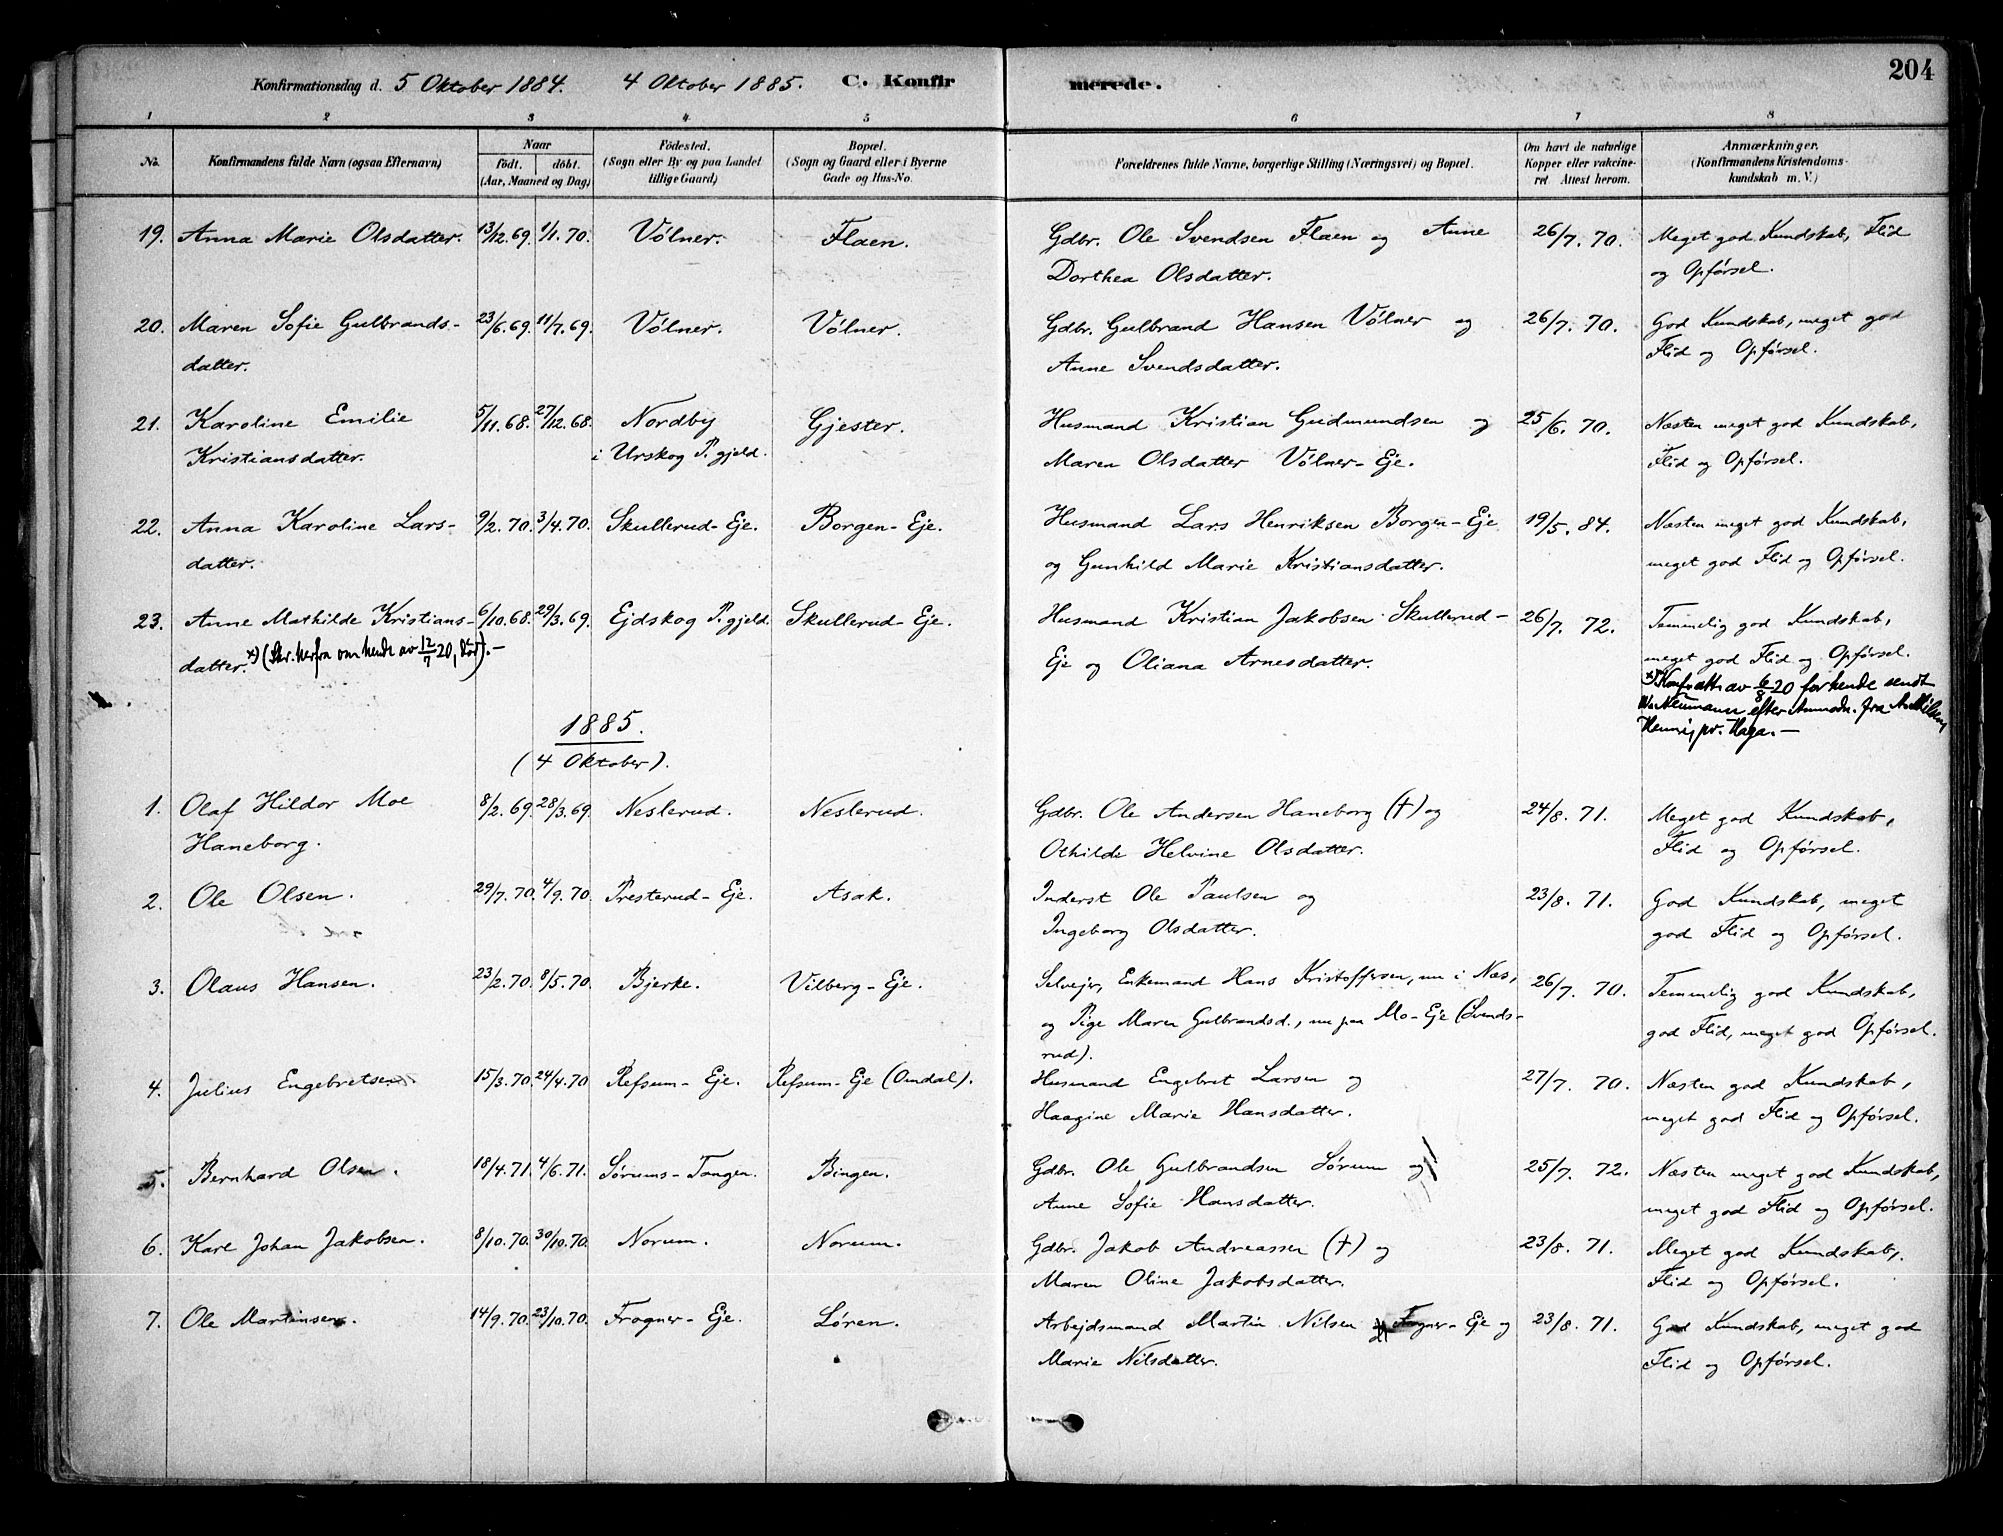 Konfirmationsdag d. 5 Oktober 1884. 4 Oktober 1885. C. Konfirmerede. 204
1 2 3 4 5 6 7 8
No. Konfirmandens fulde Navn (ogsaa Efternavn) Naar födt. döbt. (Aar, Maaned og Dag) Födested. (Sogn eller By og paa Landet tillige Gaard) Bopæl. (Sogn og Gaard eller i Byerne Gade og Hus-No. Forældrenes fulde Navne, borgerlige Stilling (Næringsvei) og Bopæl. Om havt de naturlige Kopper eller vakcineret. Attest herom. Anmærkninger. (Konfirmandens Kristendomskundskab m. V.)
19. Anna Marie Olsdatter. 13/12.69. 9/1.70. Vólner. Flaen. Gdbr. Ole Svendsen Flaen og Anne 26/7. 70. Meget god Kundskab, Flid
Dorthea Olsdatter. og Opførsel.
20. Maren Sofie Gulbrands- 23/6.69. 11/7.69. Vólner. Vólner. Gdbr. Gulbrand Hansen Vólner og 26/7. 70. God Kundskab, meget god
datter. Anne Svendsdatter. Flid og Opførsel.
21. Karoline Emilie 5/11.68. 27/12.68. Nordby Gjester. Husmand Kristian Gudmundsen og 25/6. 70. Næsten meget god Kundskab,
Kristiansdatter. i Urskog P.gjeld. Maren Olsdatter Vólner-Eje. Flid og Opførsel.
22. Anna Karoline Lars- 9/2.70. 3/4.70. Skullerud-Eje. Borgen-Eje. Husmand Lars Henriksen Borgen-Eje 19/5. 84. Næsten meget god Kundskab,
datter. og Gunhild Marie Kristiansdatter. meget god Flid og Opførsel.
23. Anne Mathilde Kristians- 6/10.68. 29/3.69. Ejdskog P.gjeld. Skullerud-Eje. Husmand Kristian Jakobsen Skullerud- 26/7. 72. Temmelig god Kundskab,
datter. x) (Skr. herfra om hende av 12/7 20, ). — Eje og Oliana Arnesdatter. meget god Flid og Opførsel.
x) Konf.att. av 6/8 20 for hende sendt
Neumann efter Anmodn. fra
pr. Haga. —
1885.
(4 Oktober).
1. Olaf Hildor Moe 8/2.69. 28/3.69. Neslerud. Neslerud. Gdbr. Ole Andersen Haneborg (†) og 24/8. 71. Meget god Kundskab,
Haneborg. Othilde Helvine Olsdatter. Flid og Opførsel.
2. Ole Olsen. 29/7.70. 4/9.70. Presterud-Eje. Asak. Inderst Ole Paulsen og 23/8. 71. God Kundskab, meget
Ingeborg Olsdatter. god Flid og Opførsel.
3. Olaus Hansen. 23/2.70. 8/5.70. Bjerke. Vilberg-Eje. Selvejer, Enkemand Hans Kristoffersen, nu i Næs, 26/7. 70. Temmelig god Kundskab,
og Pige Maren Gulbrandsd., nu paa Mo-Eje (Svends- god Flid, meget god Opførsel.
rud).
4. Julius Engebretsen. 15/3.70. 24/4.70. Refsum-Eje. Refsum-Eje (Omdal). Husmand Engebret Larsen og 27/7. 70. Næsten god Kundskab,
Haagine Marie Hansdatter. meget god Flid og Opførsel.
5. Bernhard Olsen. 18/4.71. 4/6.71. Sørums-Tangen. Bingen. Gdbr. Ole Gulbrandsen Sørum og 25/7. 72. Næsten meget god Kundskab,
Anne Sofie Hansdatter. meget god Flid og Opførsel.
6. Karl Johan Jakobsen. 8/10.70. 30/10.70. Norum. Norum. Gdbr. Jakob Andreassen (†) og 23/8. 71. Meget god Kundskab,
Maren Oline Jakobsdatter. Flid og Opførsel.
7. Ole Martinsen. 14/9.70. 23/10.70. Frogner-Eje. Løren. Arbejdsmand Martin Nilsen Frogner-Eje og 23/8. 71. God Kundskab, meget god
Marie Nilsdatter. Flid og Opførsel.